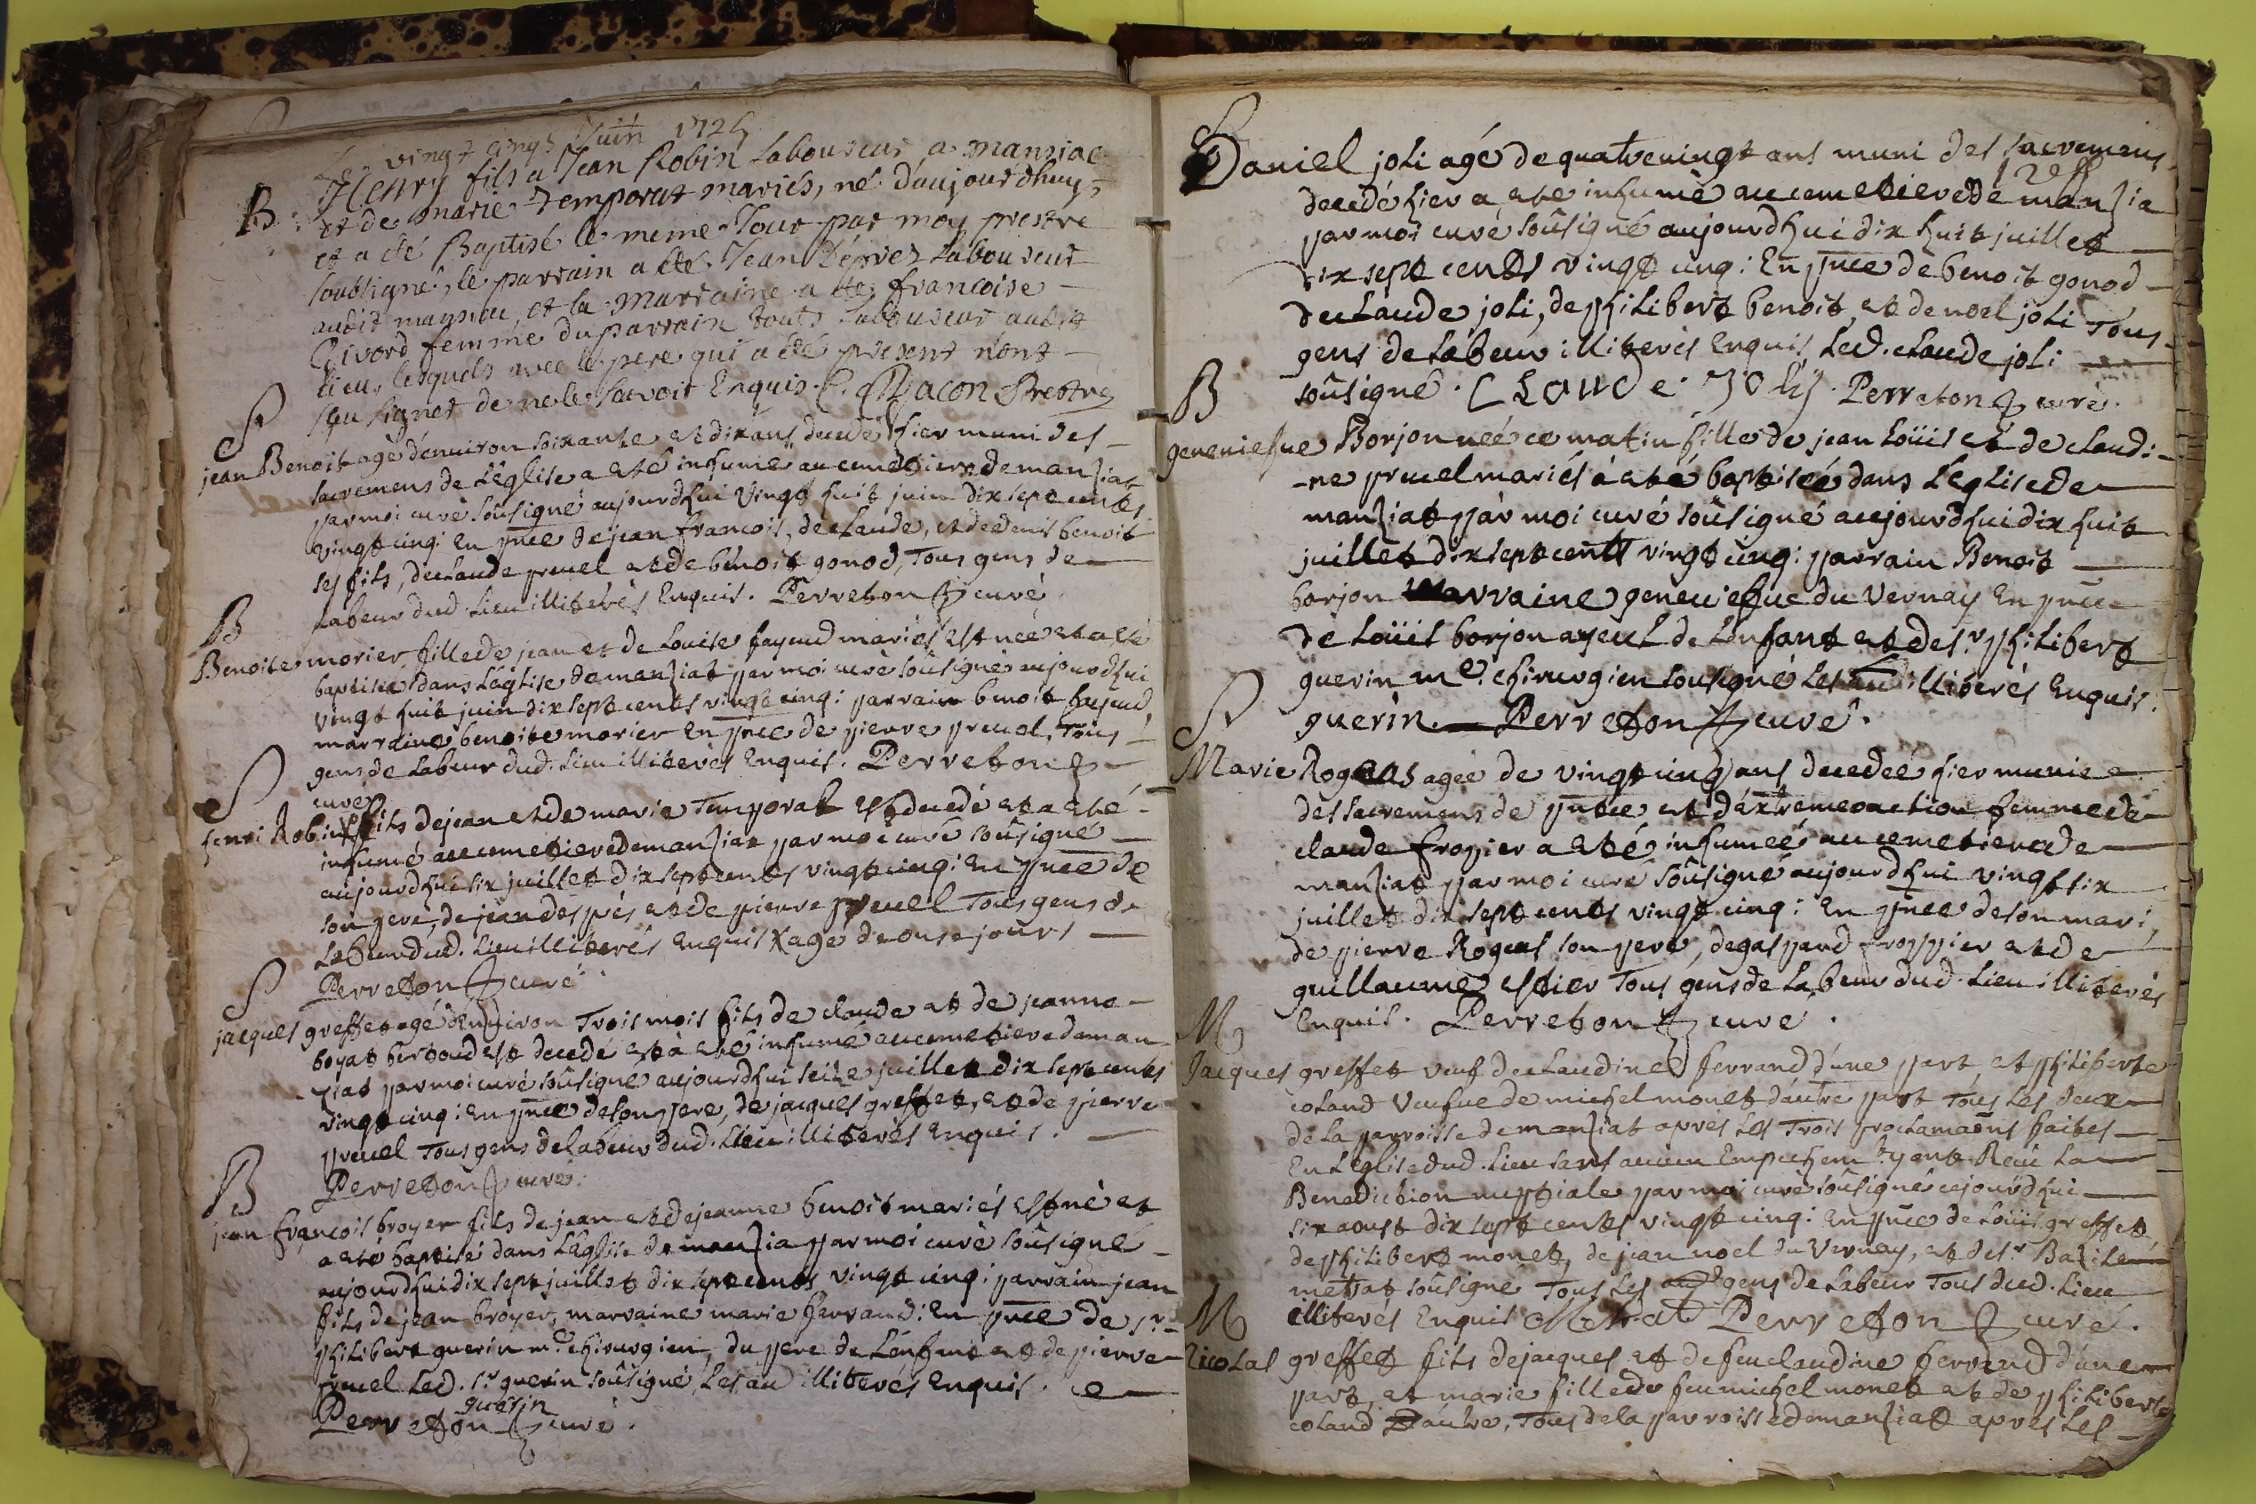 Le vingt cinq.e Juin 1725
Henry fils a Jean Robin Laboureur a manziac
B. et de marie Temporat mariés, né d'aujourdhuy,
et a été Baptisé le meme Jour par moy prestre
soubsigné, le parrain a été Jean Déprez Laboureur
audit et la marraine a été francoise
Givord femme du parrain touts Laboureur audit
lieu, lesquels avec le pere qui a été present n'ont
sçu signer de ne le savoir Enquis. C. Bacon Prestre
S
jean Benoit agé d'environ soixante et dix ans decedé hier muni des
sacremens de L'Eglise a eté inhumé au cemetiere de manziat
par moi curé soûsigné aujourd'hui vingt huit juin dix sept cents
vingt cinq: En pnce de jean francois, de claude, et de denis benoit
ses fils, de claude pruel et de benoit gonod, Tous gens de
Labeur dud. Lieu illiterés Enquis. Perreton curé
B
Benoite morier fille de jean et de Louise fayend mariés est neé et a eté
baptisée dans L'église de manziat par moi curé soûsigné aujourd'hui
vingt huit juin dix sept cents vingt cinq: parrain benoit fayend
marraine benoite morier En pnce de pierre pruel, Tous
gens de Labeur dud. Lieu illiterés Enquis. Perreton
curé
S
henri Robin X fils de jean et de marie Temporal est decedé et a eté
inhumé au cemetiere de manziat par moi curé soûsigné
aujourd'hui six juillet dix sept cents vingt cinq: En pnce de
son pere, de jean després et de pierre pruel Tous gens de
Labeur dud. Lieu illiterés Enquis X agé de onse jours
Perreton curé
S
jacques greffet agé d'environ Trois mois fils de claude et de jeanne
boyat berthoud est decedé et à eté inhumé au cemetiere de man-
ziat par moi curé soûsigné aujourd'hui seize juillet dix sept cents
vingt cinq: En pnce de son pere, de jacques greffet, et de pierre
pruel Tous gens de labeur dud. Lieu illiterés Enquis.
Perreton curé.
B
jean françois broyer fils de jean et de jeanne benoit mariés est né et
a eté baptisé dans L'église de manzia par moi curé soûsigné
aujourd'hui dix sept juillet dix sept cents vingt cinq: parrain jean
fils de jean broyer, marraine marie ferrand: En pnce de s.r
philibert guerin m.e chirurgien, du pere de L'enfant et de pierre
pruel Led. s.r guerin soûsigné, Les au illiterés Enquis.
guerin
Perreton curé.
Daniel joli agé de quatrevingt ans muni des sacremens
decedé hier a eté inhumé au cemetiere de manzia
par moi curé soûsigné aujourd'hui dix huit juillet
dix sept cents vingt cinq: En pnce de benoit gonod
de claude joli, de philibert benoit, et de noel joli Tous
gens de Labeur illiterés Enquis, Led. claude joli
soûsigné. CLaude Joly. Perreton curé.
B
geneviefve Borjon née ce matin fille de jean Loüis et de claudi-
-ne pruel mariés à eté baptisée dans L'église de
manziat par moi curé soûsigné aujourd'hui dix huit
juillet dix sept cents vingt cinq: parrain Benoit
borjon marraine geneviefve du Vernay En pnce
de Loüis borjon ayeul de L'enfant et de s.r philibert
guerin m.e chirurgien soûsigné Les au illiterés Enquis.
guerin. Perreton curé.
S
Marie Rogeas ageé de vingt cinq ans decedeé hier munie
des sacremens de pntce et d'extremeonction femme de
claude fropier a eté inhumeé au cemetiere de
manziat par moi curé soûsigné aujourd'hui vingt six
juillet dix sept cents vingt cinq: En pnce de son mari,
de pierre Rogeas son pere, de gaspard froppier et de
guillaume estier Tous gens de Labeur dud. Lieu illiterés
Enquis. Perreton curé.
M
Jacques greffet veuf de claudine ferrand d'une part, et philiberte
coland veufve de michel monet d'autre part Tous Les deux
de La parroisse de manziat aprés Les Trois proclamaõns faites
En L'églisedud. Lieu sans aucun Empechem.t ayant Receu La
Benediction nuptiale par moi curé soûsigné cejourd'hui
six aoust dix sept cents vingt cinq: En pnce de Loüis greffet
de philibert monet, de jean noel du Vernay, et de s.r Bazile
metrat soûsigné Tous Les gens de Labeur Tous dud. Lieu
illiterés Enquis Metrat Perreton curé.
M
Nicolas greffet fils de jacques et de feu claudine ferrand d'une
part, et marie fille de feu michel monet et de philiberte
coland d'autre, Tous de la parroisse de manziat aprés Les